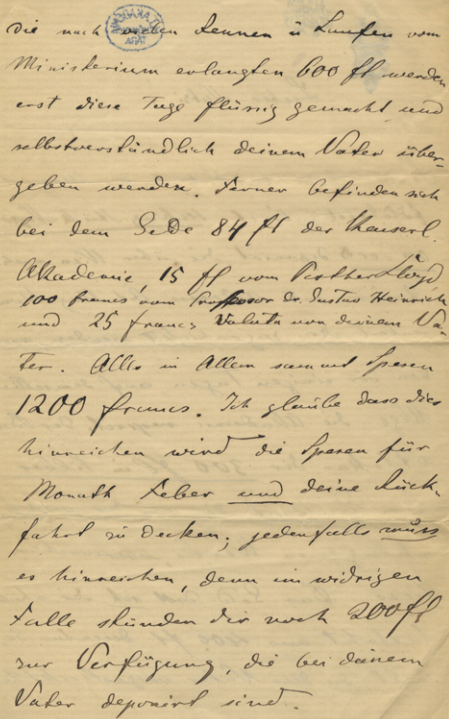 die nach vielen Rennen u Laufen vom
Ministerium erlangten 600 fl werden
erst diese Tage flüssig gemacht und
selbstverständlich deinem Vater über-
geben werden. Ferner befinden sich
bei dem Gelde 84 fl der Kaiserl.
Akademie, 15 fl vom Pester Lloyd,
100 francs vom Professor Dr. Gustav Heinrich
und 25 francs Valuta von deinem Va-
ter. Alles in Allem sammt Spesen
1200 francs. Ich glaube dass dies
hinreichen wird die Spesen für
Monath Feber und deine Rück-
fahrt zu decken; jedenfalls muss
es hinreichen, denn im widrigen
Falle stünden dir noch 200 fl
zur Verfügung, die bei deinem
Vater deponirt sind.